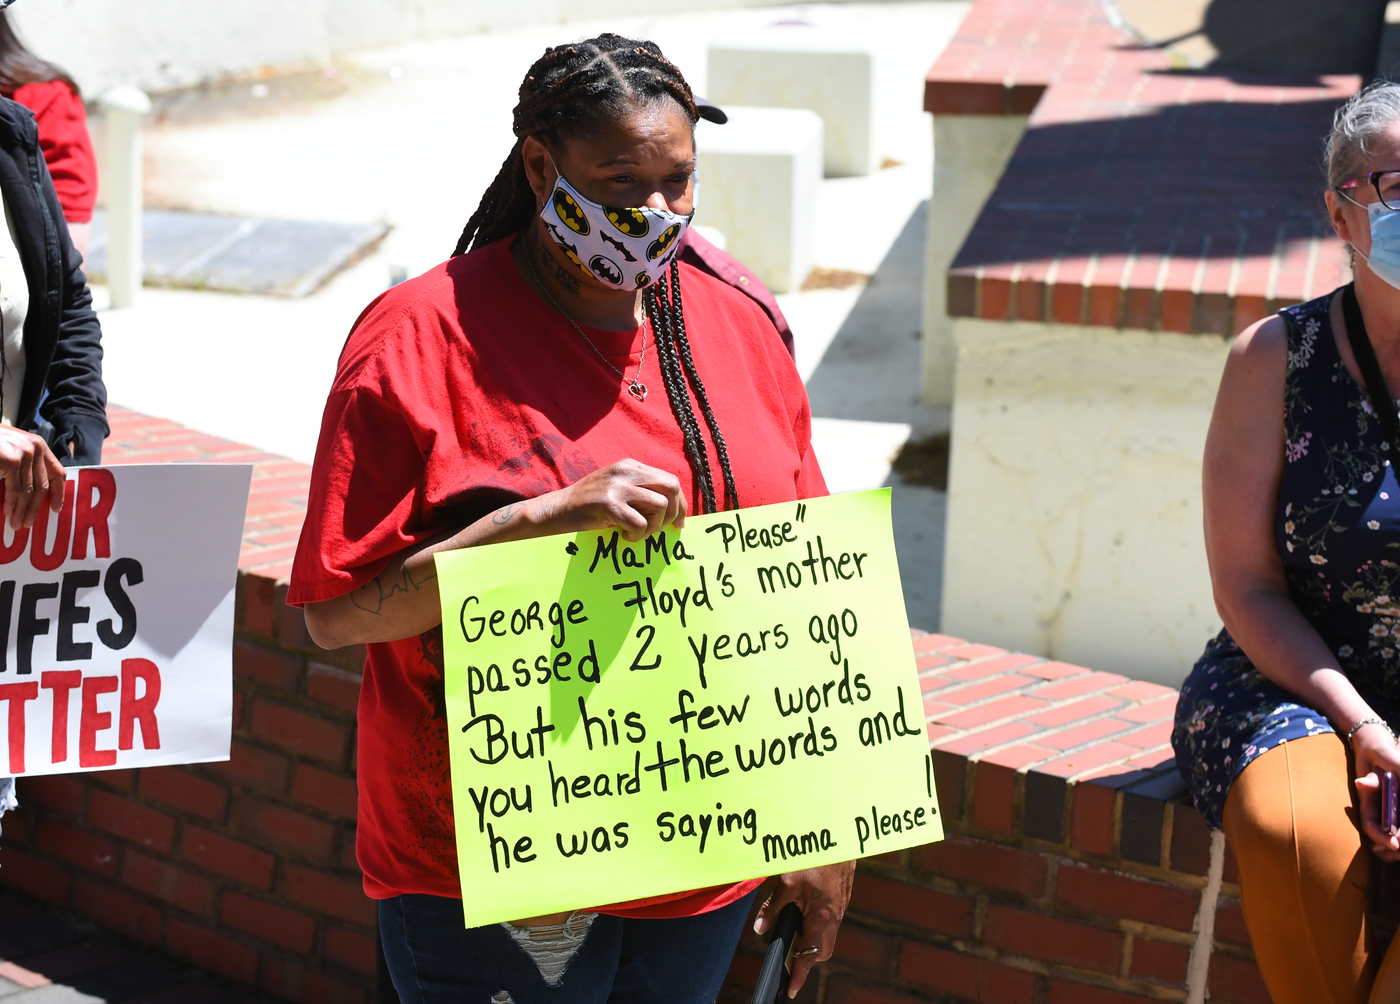 OUR
IFES
TTER
"MaMa Please"
George Floyd's mother
passed 2 years ago
But his few words
you heard the words and
he was saying mama please!